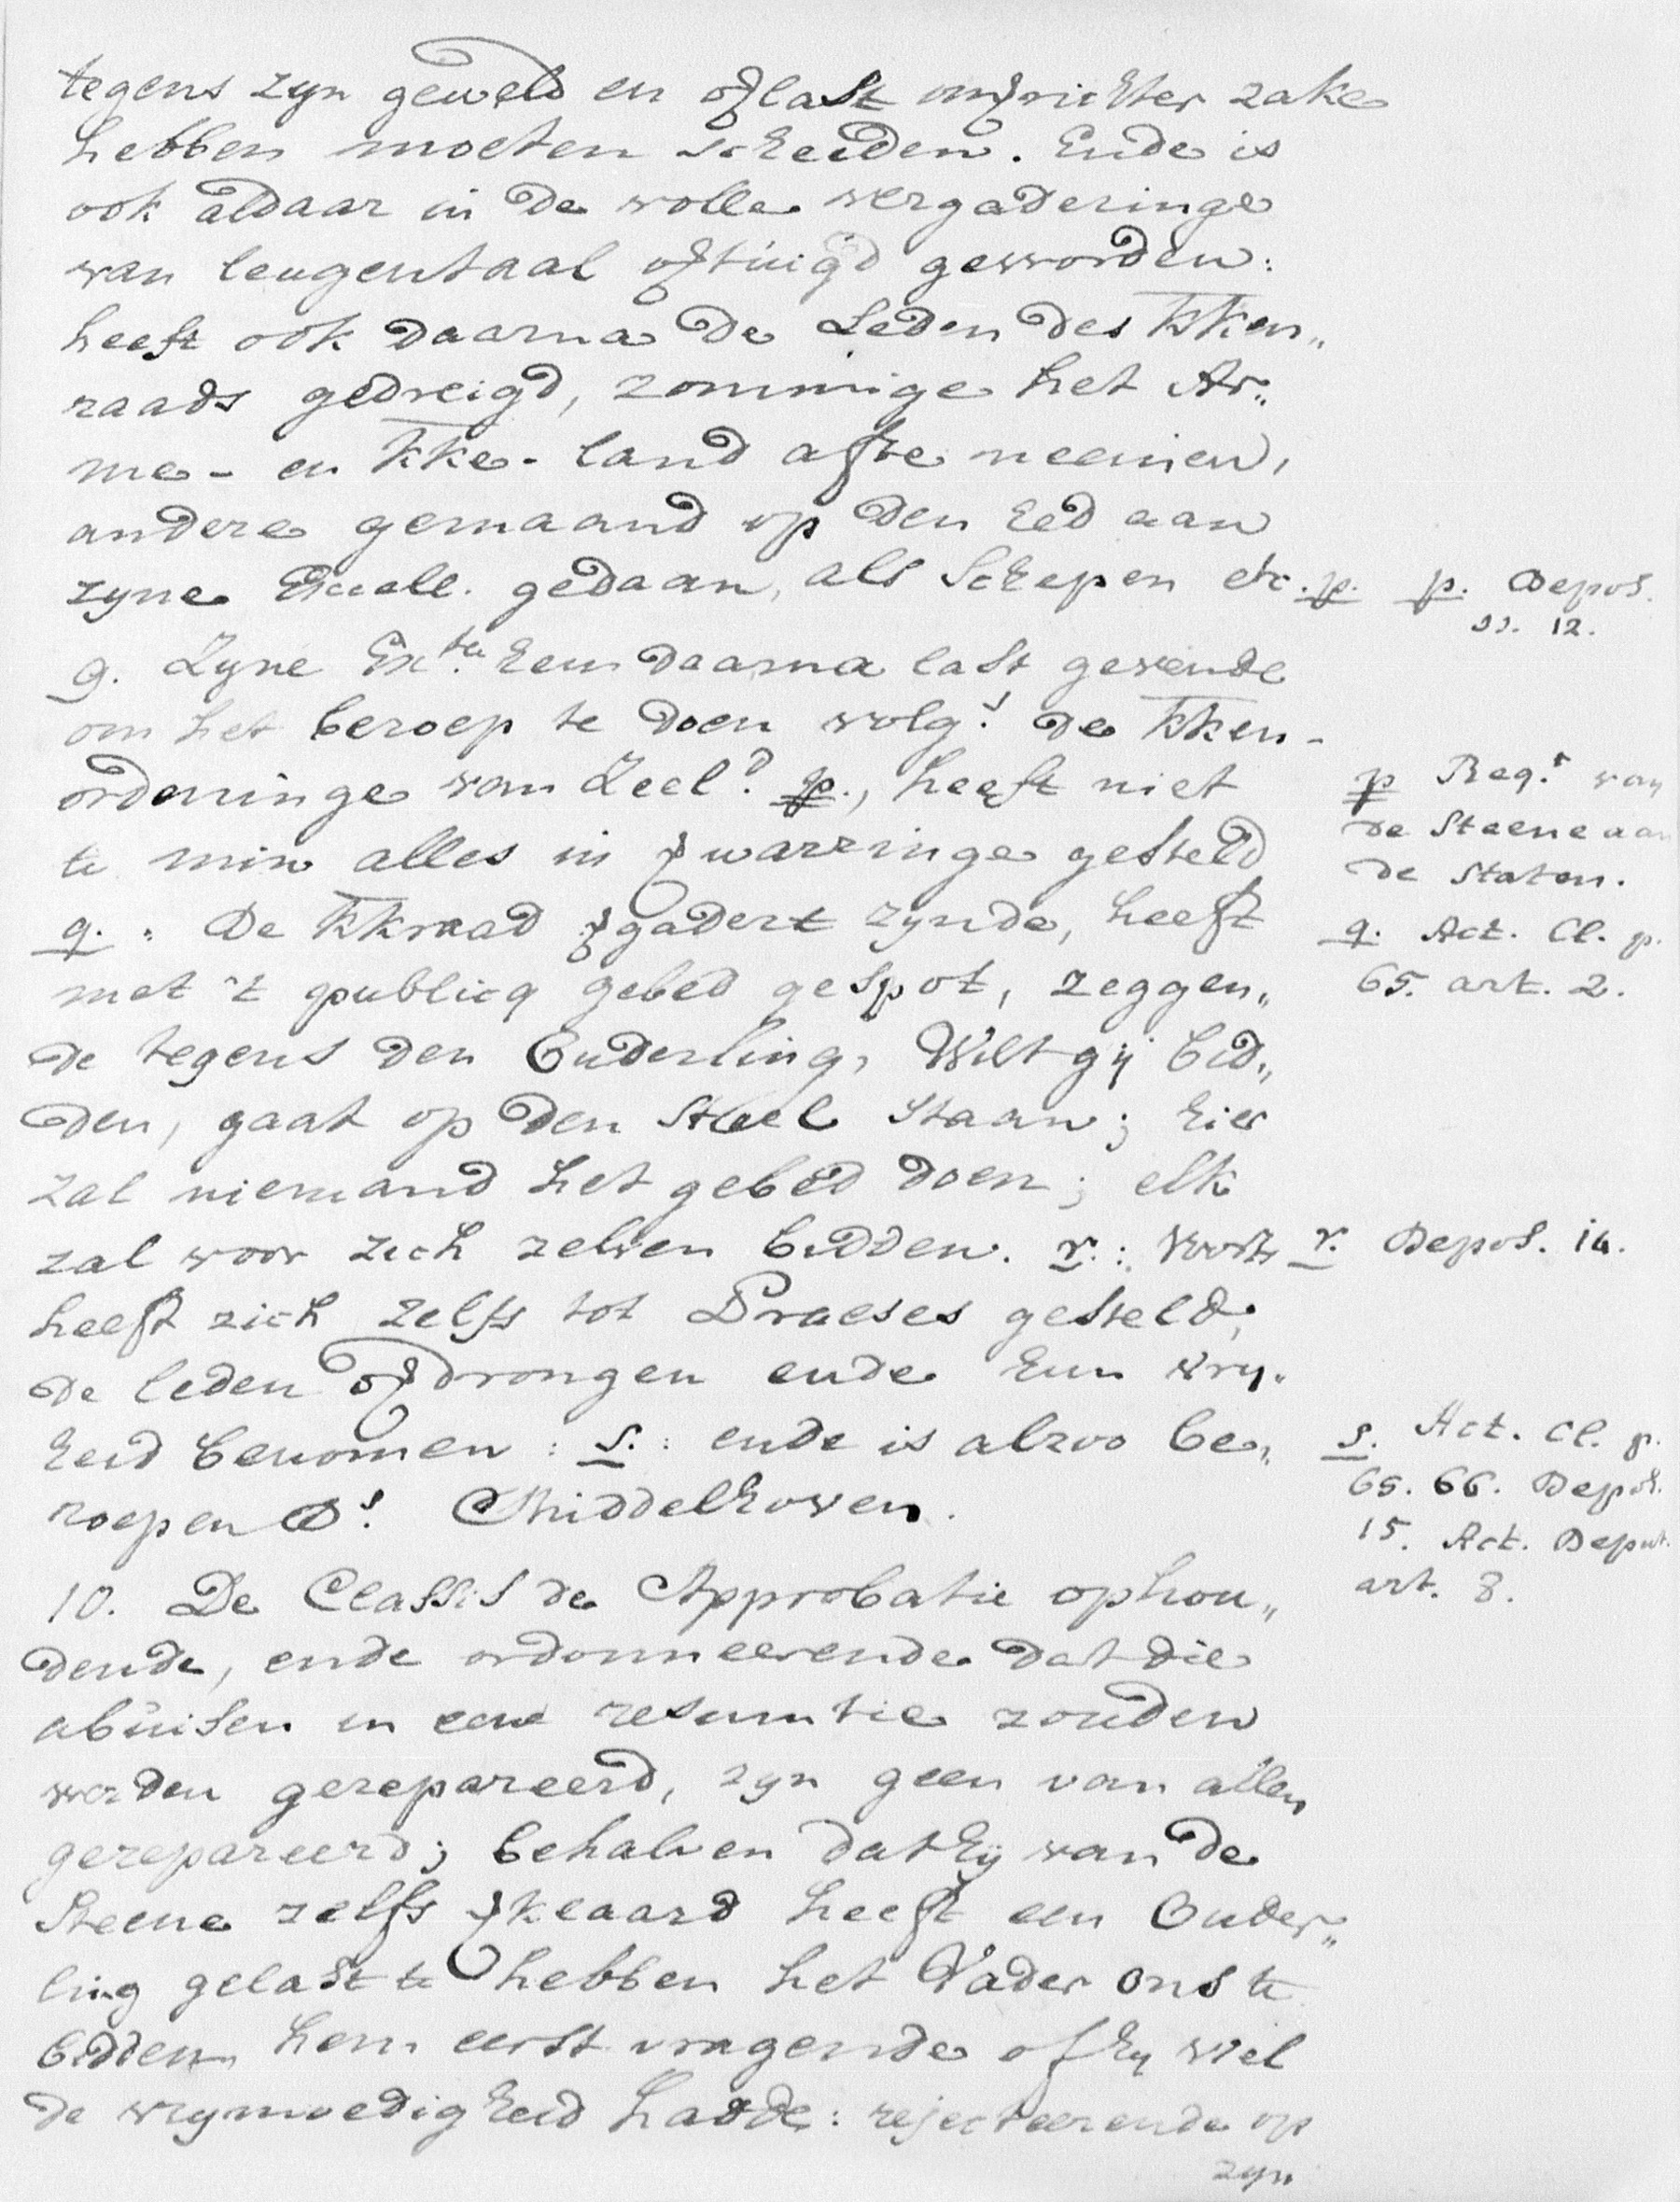 tegens zyn geweld en oflast onverrichter zake
hebben moeten scheeden. Ende is
ook aldaar in de volle vergaderinge
van leugentaal overtuigd geworden:
heeft ook daarna de Leden des Kken„
raads gedreigd, zommige het Ar„
me- en Kke- land afte neemen,
andere gemaand op den Eed aan
zyne Excell. gedaan, als Schepen etc. p.
p. Depos.
11. 12.
9. Zyne Extie hem daarna last gevende
om het beroep te doen volgs de Kken-
ordeninge van Zeeld p., heeft niet
te min alles in verwarringe gesteld
p Reqt van
de Steene aan
de Staten.
q. : De Kkraad vergadert zynde, heeft
met 't publicq gebed gespot, zeggen„
q. Act. Cl. p.
65. art. 2.
de tegens den Ouderling, Wilt gij bid„
den, gaat op den Stoel staan; hier
zal niemand het gebed doen; elk
zal voor zich zelven bidden. r.: Voorts
r. Depos. 14.
heeft zich zelfs tot Praeses gesteld,
de leden overdrongen ende hun vry„
heid benomen: s.: ende is alzoo be„
roepen Ds. Middelhoven.
s. Act. Cl. p.
65. 66. Depos.
15. Act. Deput.
art. 8.
10. De Classis de Approbatie ophou„
dende, ende ordonneerende dat die
abuisen in eene resumtie zouden
worden gerepareerd, zyn geen van allen
gerepareerd; behalven dat hij van de
Steene zelfs verklaard heeft een Ouder„
ling gelast te hebben het Vader ons te
bidden, hem eerst vragende of hy wel
de vrymoedigheid hadde: rejecteerende op
zyn